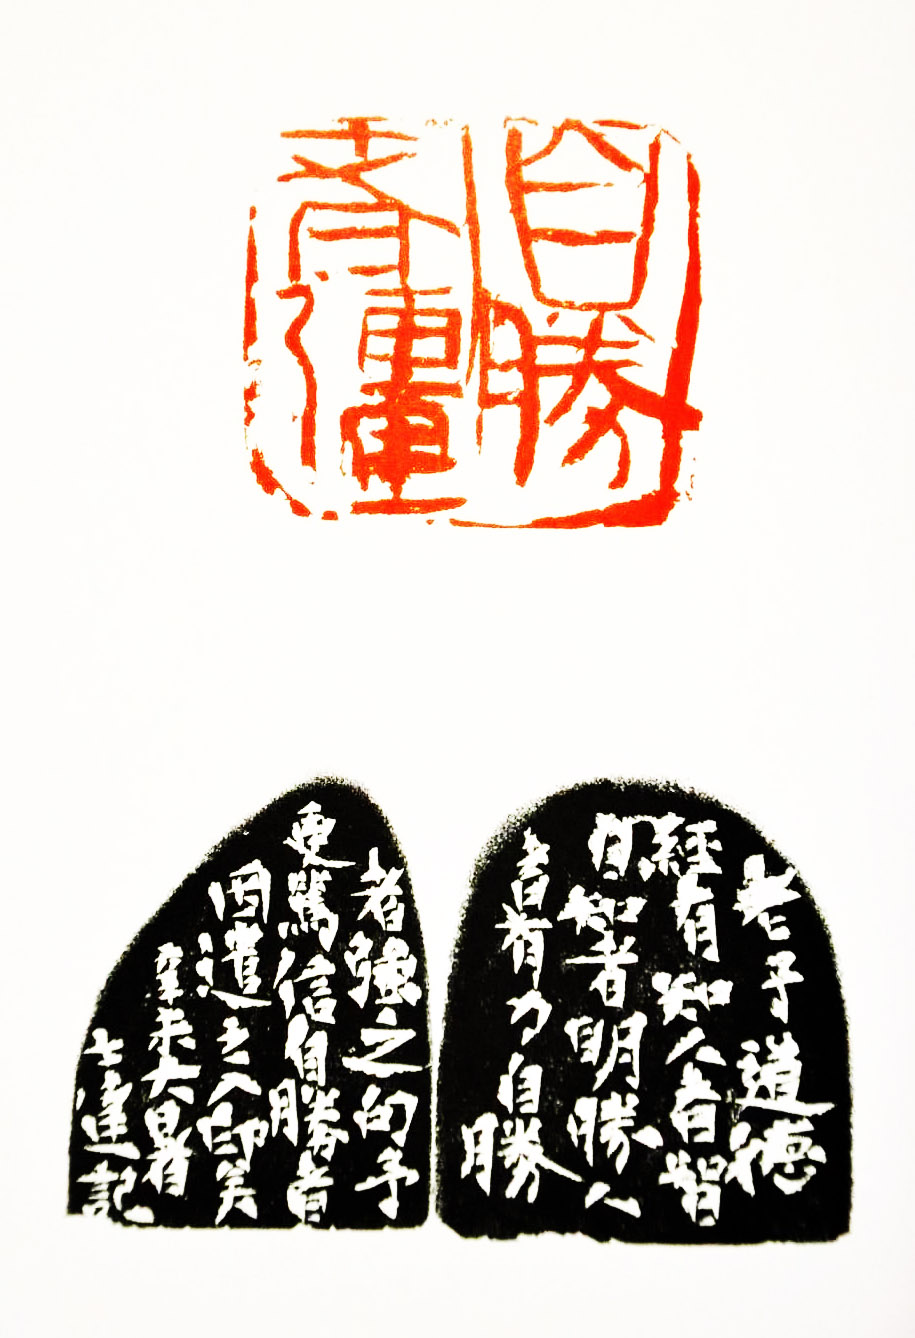 自勝
者彊
老子道德
經有知人者智
自知者明勝人
者有力自勝
者強之的予
更篤信自勝者
因遣之入印矣
辛未大暑
達記